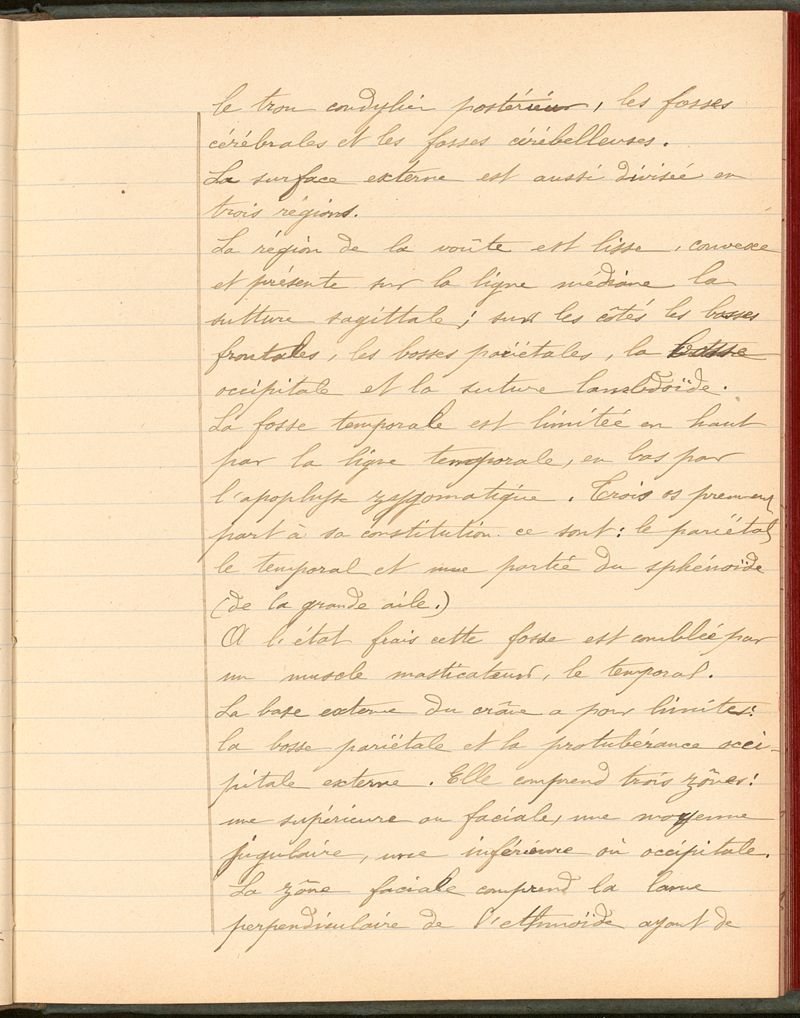 le trou condylien postérieur, les fosses
cérébrales et les fosses cérébelleuses.
La surface externe est aussi divisée en
trois régions.
La région de la voûte est lisse, convexe
et présente sur la ligne médiane la
sutture sagittale; sur les côtés les bosses
frontales, les bosses pariétales, la bosse
occipitale et la suture lambdoïde.
La fosse temporale est limitée en haut
par la ligne temporale, en bas par
l'apophyse zygomatique. Trois os prennent
part à sa constitution ce sont: le pariétal
le temporal et une partie du sphénoïde
(de la grande aile.)
A l'état frais cette fosse est comblée par
un muscle masticateur, le temporal.
La base externe du crâne a pour limites:
la bosse pariétale et la protubérance occi-
pitale externe. Elle comprend trois zônes:
une supérieure ou faciale, une moyenne
jugulaire, une inférieure ou occipitale.
La zône faciale comprend la lame
perpendiculaire de l'ethmoïde ayant de